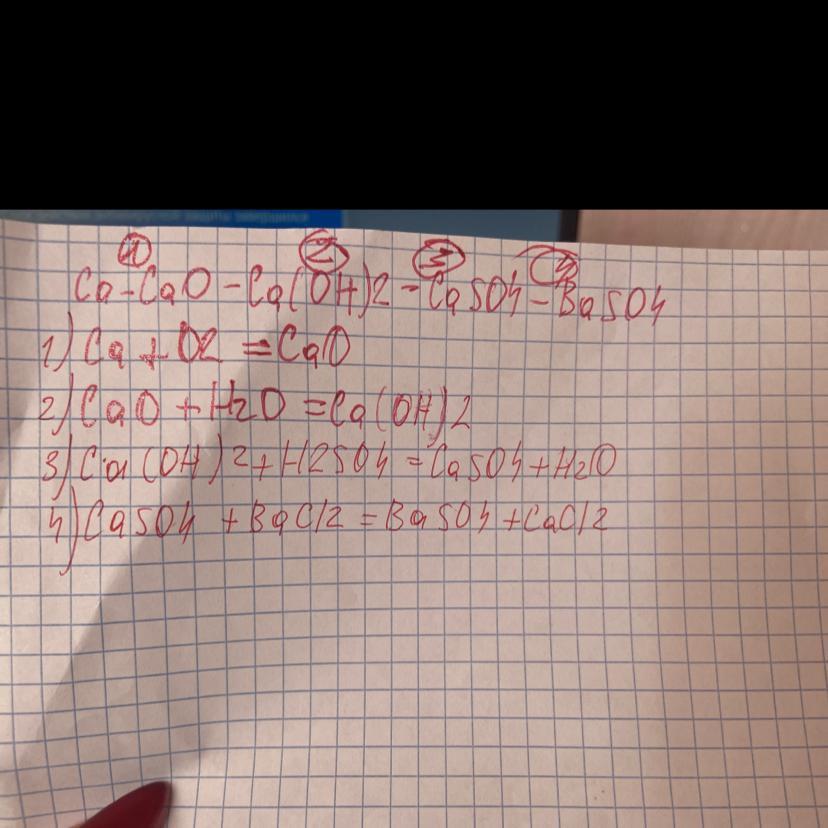 1 2 3 4
Ca-CaO-Ca(OH)2-CaSO4-BaSO4
1) Ca+O2=CaO
2) CaO+H2O=Ca(OH)2
3) Ca(OH)2+H2SO4=CaSO4+H2O
4) CaSO4+BaCl2=BaSO4+CaCl2